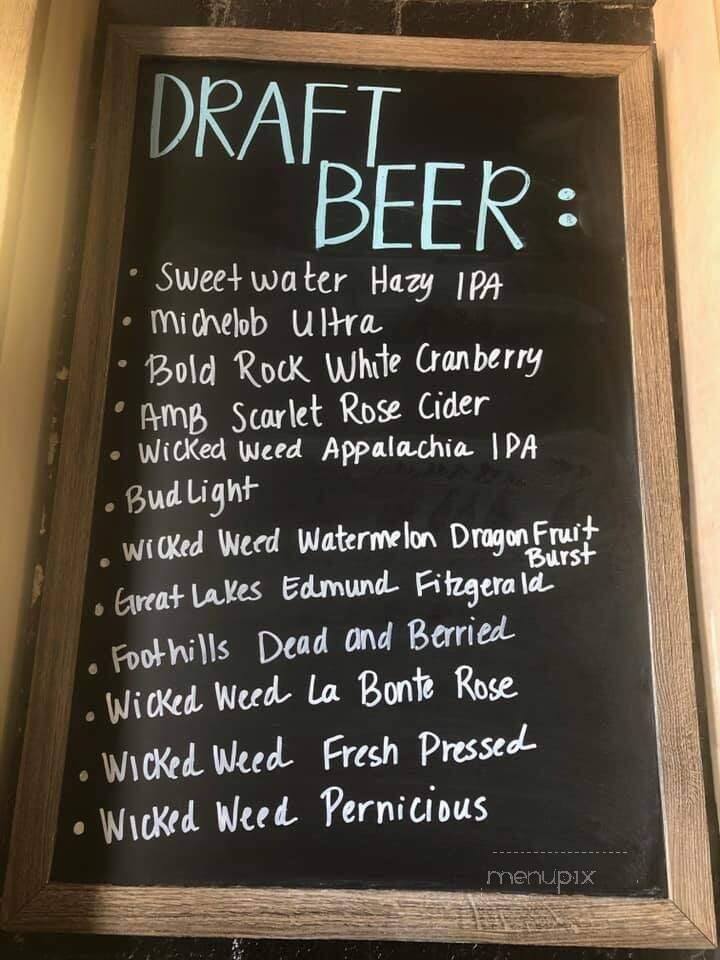 DRAFT
BEER:
• Sweetwater Hazy IPA
• Michelob Ultra
• Bold Rock White Cranberry
• AMB Scarlet Rose Cider
• Wicked Weed Appalachia IPA
• Bud Light
• Wicked Weed Watermelon Dragon Fruit
Burst
• Great Lakes Edmund Fitzgerald
• Foothills Dead and Berried
• Wicked Weed La Bonte Rose
• Wicked Weed Fresh Pressed
• Wicked Weed Pernicious
menupix